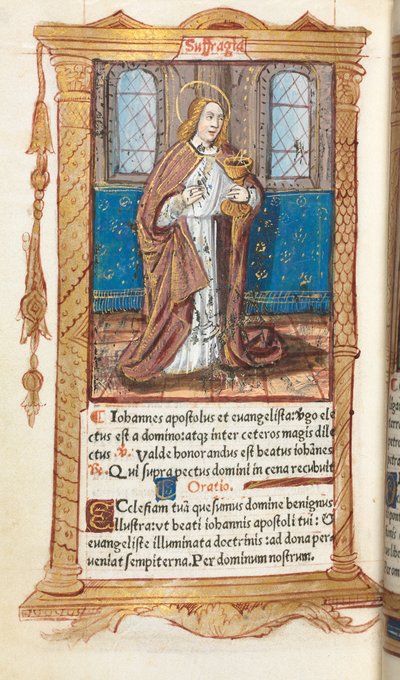 Suffragia
¶ Iohannes apostolus et evangelista: v̄go ele
ctus est a domino: atqȝ inter ceteros magis dile
ctus ℣. Valde honorandus est beatus iohānes
℟. Qui supra pectus domini in cena recubuit
Oratio.
Ecclesiam tuā quesumus domine benignus
illustra: vt beati iohannis apostoli tui: &
euangeliste illuminata doctrinis: ad dona per⸗
ueniat sempiterna. Per dominum nostrum.